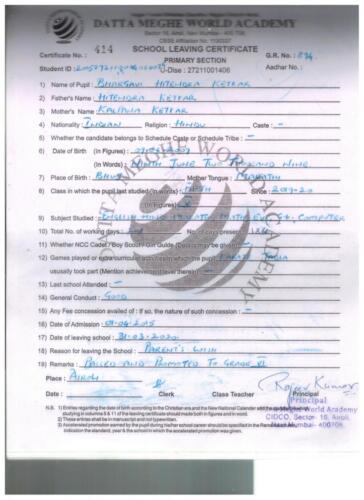 DATTA MEGHE WORLD ACADEMY
Sector 16, Airoli, Navi Mumbai - 400 708.
CBSE Affiliation No. 1130337
Certificate No. : 414 SCHOOL LEAVING CERTIFICATE G.R. No. :
PRIMARY SECTION
Student ID : U-Dise : 27211001406 Aadhar No.:
1) Name of Pupil : BHARGAVI HITENDRA KETKAR
2) Father's Name : HITENDRA KETKAR
3) Mother's Name : KALPANA KETKAR
4) Nationality : INDIAN Religion : HINDU Caste : -
5) Whether the candidate belongs to Schedule Caste or Schedule Tribe : -
6) Date of Birth (In Figures) :
(In Words) : NINTH JUNE TWO THOUSAND NINE
7) Place of Birth : Mother Tongue : MARATHI
8) Class in which the pupil last studied (In words) : FIFTH Since : 2019-20
(In Figures)
9) Subject Studied : ENGLISH, HINDI, MARATHI, MATHS, EVS, COMPUTER
10) Total No. of working days : No. of days present :
11) Whether NCC Cadet / Boy Scout / Girl Guide (Details may be given) : -
12) Games played or extra curricular activities in which the pupil
usually took part (Mention achievement level therein) : -
13) Last school Attended : -
14) General Conduct : GOOD
15) Any Fee concession availed of : If so, the nature of such concession : -
16) Date of Admission : 2015
17) Date of leaving school : 31-03-2020
18) Reason for leaving the School : PARENT'S WISH
19) Remarks : PASSED AND PROMOTED TO GRADE VI
Place : AIROLI
Date : Clerk Class Teacher Principal
Principal
Datta Meghe World Academy
CIDCO, Sector- 16, Airoli,
Navi Mumbai- 400708.
N.B. 1) Entries regarding the date of birth according to the Christian era and the New National Calender and the
studying in columns 6 & 11 of the leaving certificate should be made both in figures and in word.
2) These entries shall be in manuscript and not typewritten.
3) Accelerated promotion earned by the pupil during his/her school career should be specified in the Remarks
indication the standard, year & the school in which the accelerated promotion was given.